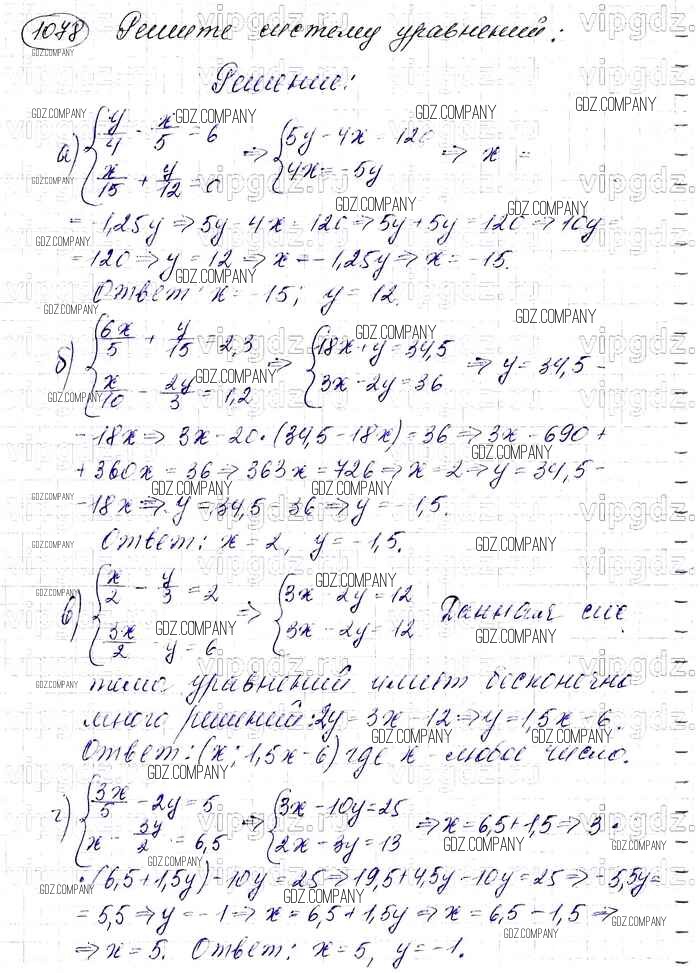 1078 Решите систему уравнений:
Решение:
а) { y/4 - x/5 = 6 ⇒ { 5y - 4x = 120 ⇒ x =
{ x/15 + y/12 = 0 { 4x = -5y
= 1,25y ⇒ 5y - 4x = 120 ⇒ 5y + 5y = 120 ⇒ 10y =
= 120 ⇒ y = 12 ⇒ x = -1,25y ⇒ x = -15.
Ответ: x = -15; y = 12.
б) { 6x/5 + y/15 = 2,3 ⇒ { 18x + y = 34,5 ⇒ y = 34,5 -
{ x/10 - 2y/3 = 1,2 { 3x - 2y = 36
- 18x ⇒ 3x - 20·(34,5 - 18x) = 36 ⇒ 3x - 690 +
+ 360x = 36 ⇒ 363x = 726 ⇒ x = 2 ⇒ y = 34,5 -
- 18x ⇒ y = 34,5 - 36 ⇒ y = -1,5.
Ответ: x = 2, y = -1,5.
в) { x/2 - y/3 = 2 ⇒ { 3x - 2y = 12 Данная сис
{ 3x/2 - y = 6 { 3x - 2y = 12
тема уравнений имеет бесконечно
много решений: 2y = 3x - 12 ⇒ y = 1,5x - 6.
Ответ: (x; 1,5x - 6) где x - любое число.
г) { 3x/5 - 2y = 5 ⇒ { 3x - 10y = 25 ⇒ x = 6,5 + 1,5 ⇒ 3 ·
{ x - 3y/2 = 6,5 { 2x - 3y = 13
· (6,5 + 1,5y) - 10y = 25 ⇒ 19,5 + 4,5y - 10y = 25 ⇒ -5,5y =
= 5,5 ⇒ y = -1 ⇒ x = 6,5 + 1,5y ⇒ x = 6,5 - 1,5 ⇒
⇒ x = 5. Ответ: x = 5, y = -1.
GDZ.COMPANY
vipgdz.ru